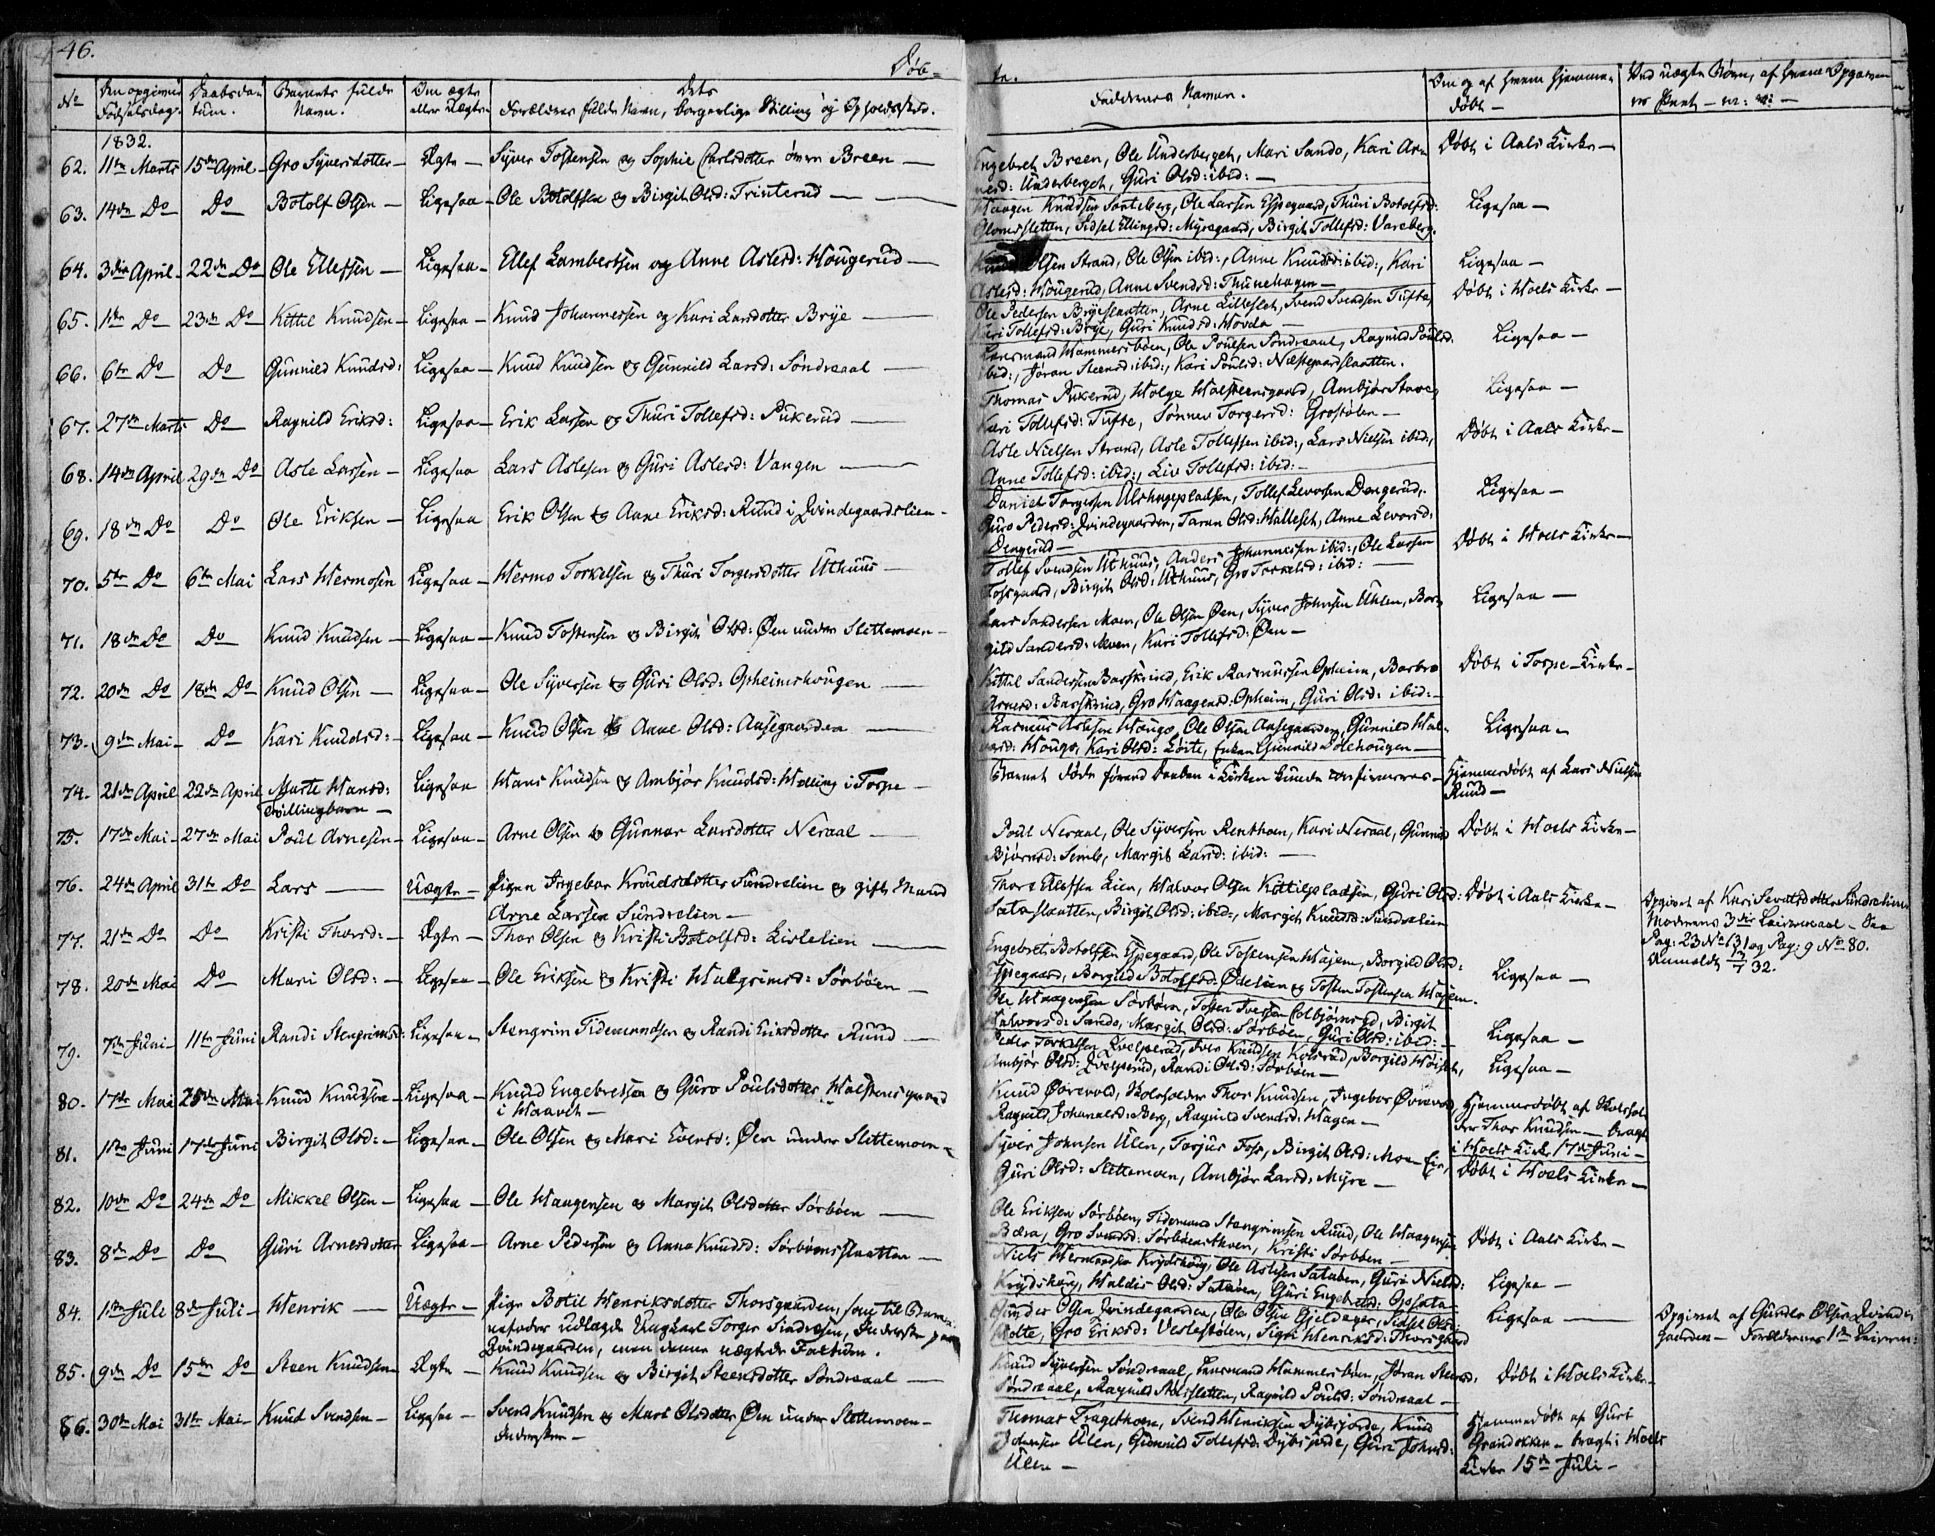 46.
Døb-
te.
No
Den opgivne Fødselsdag.
Daabsda- tum.
Barnets fulde Navn.
Om ægte eller Uægte
Dets Forældres fulde Navn, borgerlige Stilling og Opholdssted.
Faddernes Navne.
Om og af hvem hjemme- døbt —
Ved uægte Børn, af hvem Opgaven er skeet —
1832.
62. 11te Marts 15de April Gro Syversdotter Ægte Syver Tostensen og Sophie Carlsdotter Breen
Engebret Breen, Ole Underberget, Mari Sando, Kari Ar-
nesd: Underberget, Guri Olsd: ibid:
Døbt i Aals Kirke
63. 14de Do Do Botolf Olsen Ligesaa Ole Botolfsen og Birgit Olsd: Trinterud
Haagen Knudsen, Ole Larsen Espegaard, Thuri Botolfsd:
Sidsel Ellingsd: Myregaard, Birgit Tollefsd: Vareberg.
Ligesaa
64. 3die April 22de Do Ole Ellefsen Ligesaa Ellef Lambertsen og Anne Aslesd: Hougerud
Olsen Strand, Ole Olsen ibid:, Anne Knudsd: ibid:, Kari
Aslesd: Hougerud, Anne Svendsd: Thunehagen
Ligesaa
65. 1ste Do 23de Do Kittil Knudsen Ligesaa Knud Johannessen og Kari Larsdotter Brye
Ole Pedersen Bryeslaatten, Arne Lilleslet, Svend Svendsen Tufte,
Kari Tollefsd: Brye, Guri Knudsd: Hovda
Døbt i Hoels Kirke
66. 6te Do Do Gunnild Knudsd: Ligesaa Knud Knudsen og Gunnild Larsd: Søndreaal
Lensmand Hammersbøen, Ole Poulsen Søndreaal, Ragnild Poulsd:
ibid:, Jøran Steensd: ibid:, Kari Poulsd: Næstegaardslaatten.
Ligesaa
67. 27de Marts Do Ragnild Eriksd: Ligesaa Erik Larsen og Thuri Tollefsd: Pukerud
Thomas Pukerud, Holge Halsteensgaard, Ambjør Stave,
Kari Tollefsd: Tufte, Sønnev Torgersd: Grostølen
Ligesaa
68. 14de April 29de Do Asle Larsen Ligesaa Lars Aslesen og Guri Aslesd: Vangen
Asle Nielsen Strand, Asle Tollefsen ibid:, Lars Nielsen ibid:,
Anne Tollefsd: ibid:, Liv Tollefsd: ibid:
Døbt i Aals Kirke
69. 18de Do Do Ole Eriksen Ligesaa Erik Olsen og Anne Eriksd: Ruud i Qvindegaardslien
Daniel Torgersen Ulshagepladsen, Tollef Levorsen Dengerud,
Guro Pedersd: Qvindegaarden, Taran Olsd: Halleset, Anne Levorsd:
Dengerud
Ligesaa
70. 5te Do 6te Mai Lars Hermosen Ligesaa Hermo Torkelsen og Thuri Torgersdotter Uthuus
Tollef Svendsen Uthuus, Anders Johannessen ibid:, Ole Larsen
Torsgaard, Birgit Olsd: Uthuus, Gro Torkelsd: ibid:
Døbt i Hoels Kirke
71. 18de Do Do Knud Knudsen Ligesaa Knud Tostensen og Birgit Olsd: Øen under Slettemoen
Lars Sandersen Moen, Ole Olsen Øen, Syver Johnsen Uhlen, Bor-
gild Sandersd: Moen, Kari Tollefsd: Øen
Ligesaa
72. 20de Do 18de Do Knud Olsen Ligesaa Ole Syversen og Guri Olsd: Opheimshougen
Kittil Sandersen Barskrind, Erik Rasmussen Opheim, Barbro
Arnesd: Barskrind, Gro Haagensd: Opheim, Guri Olsd: ibid:
Døbt i Torpe Kirke
73. 9de Mai Do Kari Knudsd: Ligesaa Knud Olsen og Anne Olsd: Aasegaarden
Rasmus Aslesen Hougo, Ole Olsen Aasegaarden, Gunnild Hal-
vorsd: Hougo, Kari Olsd: Løite, Enken Gunnild Dølehougen
Ligesaa
74. 21de April 22de April Marte Hansd: Ligesaa Hans Knudsen og Ambjør Knudsd: Helling i Torpe
Tvillingbarn
Barnet døde førend Daaben i Kirken kunde confirmeres
Hjemmedøbt af Lars Nielsen
Ruud
75. 17de Mai 27de Mai Poul Arnesen Ligesaa Arne Olsen og Gunnor Larsdotter Neraal
Poul Neraal, Ole Syversen Renthoen, Kari Neraal, Gunnild
Bjørnsd: Semb, Margit Larsd: ibid:
Døbt i Hoels Kirke
76. 24de April 31te Do Lars Uægte Pigen Ingebor Knudsdotter Sundrelien og gift Mand
Arne Larsen Sundrelien
Thore Ellefsen Lien, Halvor Olsen Kittilspladsen, Guri Olsd:
Sataslaatten, Birgit Olsd: ibid:, Margit Knudsd: Sundrelien
Døbt i Aals Kirke
Opgivet af Kari Sevatsdotter Sundrelien
Moderens 3die Leiermaal – See
Pag: 23 No 131 og Pag: 9 No 80.
77. 21de Do Do Kristi Thorsd: Ægte Thor Olsen og Kristi Botolfsd: Lislelien
Engebret Botolfsen Espegaard, Ole Tostensen Hajem, Borgild Olsd:
Espegaard, Borgild Botolfsd: Ødelien og Tosten Tostensen Hajem.
Ligesaa
78. 20de Mai Do Mari Olsd: Ligesaa Ole Eriksen og Kristi Halgrimsd: Sørbøen
Ole Haagensen Sørbøen, Tosten Iversen Colbjørnsrud, Birgit
Halvorsd: Sando, Margit Olsd: Sørbøen, Guri Olsd: ibid:
Ligesaa
79. 7de Juni 11te Juni Randi Stengrimsd: Ligesaa Stengrim Tidemandsen og Randi Eriksdotter Ruud
Peder Torkelsen Qvelprud, Iver Knudsen Kolsrud, Borgild Høiset,
Ambjør Olsd: Qvelprud, Randi Olsd: Sørbøen
Ligesaa
80. 17de Mai 25de Mai Knud Knudsen Ligesaa Knud Engebretsen og Guro Poulsdotter Halsteensgaard
i Haavet
Knud Ørevold, Skoleholder Thor Knudsen, Ingebor Ørevold,
Ragnild Johannesd: Berg, Ragnild Svendsd: Hagen
Hjemmedøbt af Skolehol-
der Thor Knudsen – bragt
i Hoels Kirke 17de Juni
81. 1ste Juni 17de Juni Birgit Olsd: Ligesaa Ole Olsen og Mari Evensd: Øen under Slettemoen
Syver Johnsen Ulen, Torjus Foss, Birgit Olsd: Moen,
Guri Olsd: Slettemoen, Ambjør Larsd: Myre
Døbt i Hoels Kirke
82. 10de Do 24de Do Mikkel Olsen Ligesaa Ole Haagensen og Margit Olsdotter Sørbøen
Ole Eriksen Sørbøen, Tidemand Stengrimsen Ruud, Ole Haagensen
Bæra, Gro Svendsd: Sørbøensthoen, Kristi Sørbøen
Døbt i Aals Kirke
83. 8de Do Do Guri Arnesdotter Ligesaa Arne Pedersen og Anne Knudsd: Sørbøensslaatten
Niels Hermandsen Krydshoug, Ole Aslesen Sataben, Guri Nielsd:
Krydshoug, Haldis Olsd: Satøen, Guri Engebretsd: Opsata
Ligesaa
84. 1ste Juli 8de Juli Henrik Uægte Pige Botil Henriksdotter Thorsgaarden, som til Barne-
fader udlagde Ungkarl Torger Sindresen, Inderste paa
Qvindegaarden, men denne nægtede Factum.
Gunder Olsen Qvindegaarden, Ole Olsen Gjeldager, Sidsel Olsd:
Holte, Gro Eriksd: Veslestølen, Sigri Henriksd: Thorsgaard
Ligesaa
Opgivet af Gunder Olsen Qvinde-
gaarden – Forældrenes 1ste Leierm:
85. 9de Do 15de Do Steen Knudsen Ægte Knud Knudsen og Birgit Steensdotter Søndreaal
Knud Syversen Søndreaal, Lensmand Hammersbøen, Jøran Steensd:
Søndreaal, Ragnild, Ragnild Poulsd: Søndreaal
Døbt i Hoels Kirke
86. 30te Mai 31te Mai Knud Svendsen Ligesaa Svend Knudsen og Mari Olsdotter Øen under Slettemoen
Inderster
Tragethoen, Svend Henriksen Dybsjorde, Knud
Johnsen Ulen, Gunnild Tollefsd: Dybsjorde, Guri Johnsd:
Ulen
Hjemmedøbt af Guri
Grandokken – bragt i Hoels
Kirke 15de Juli